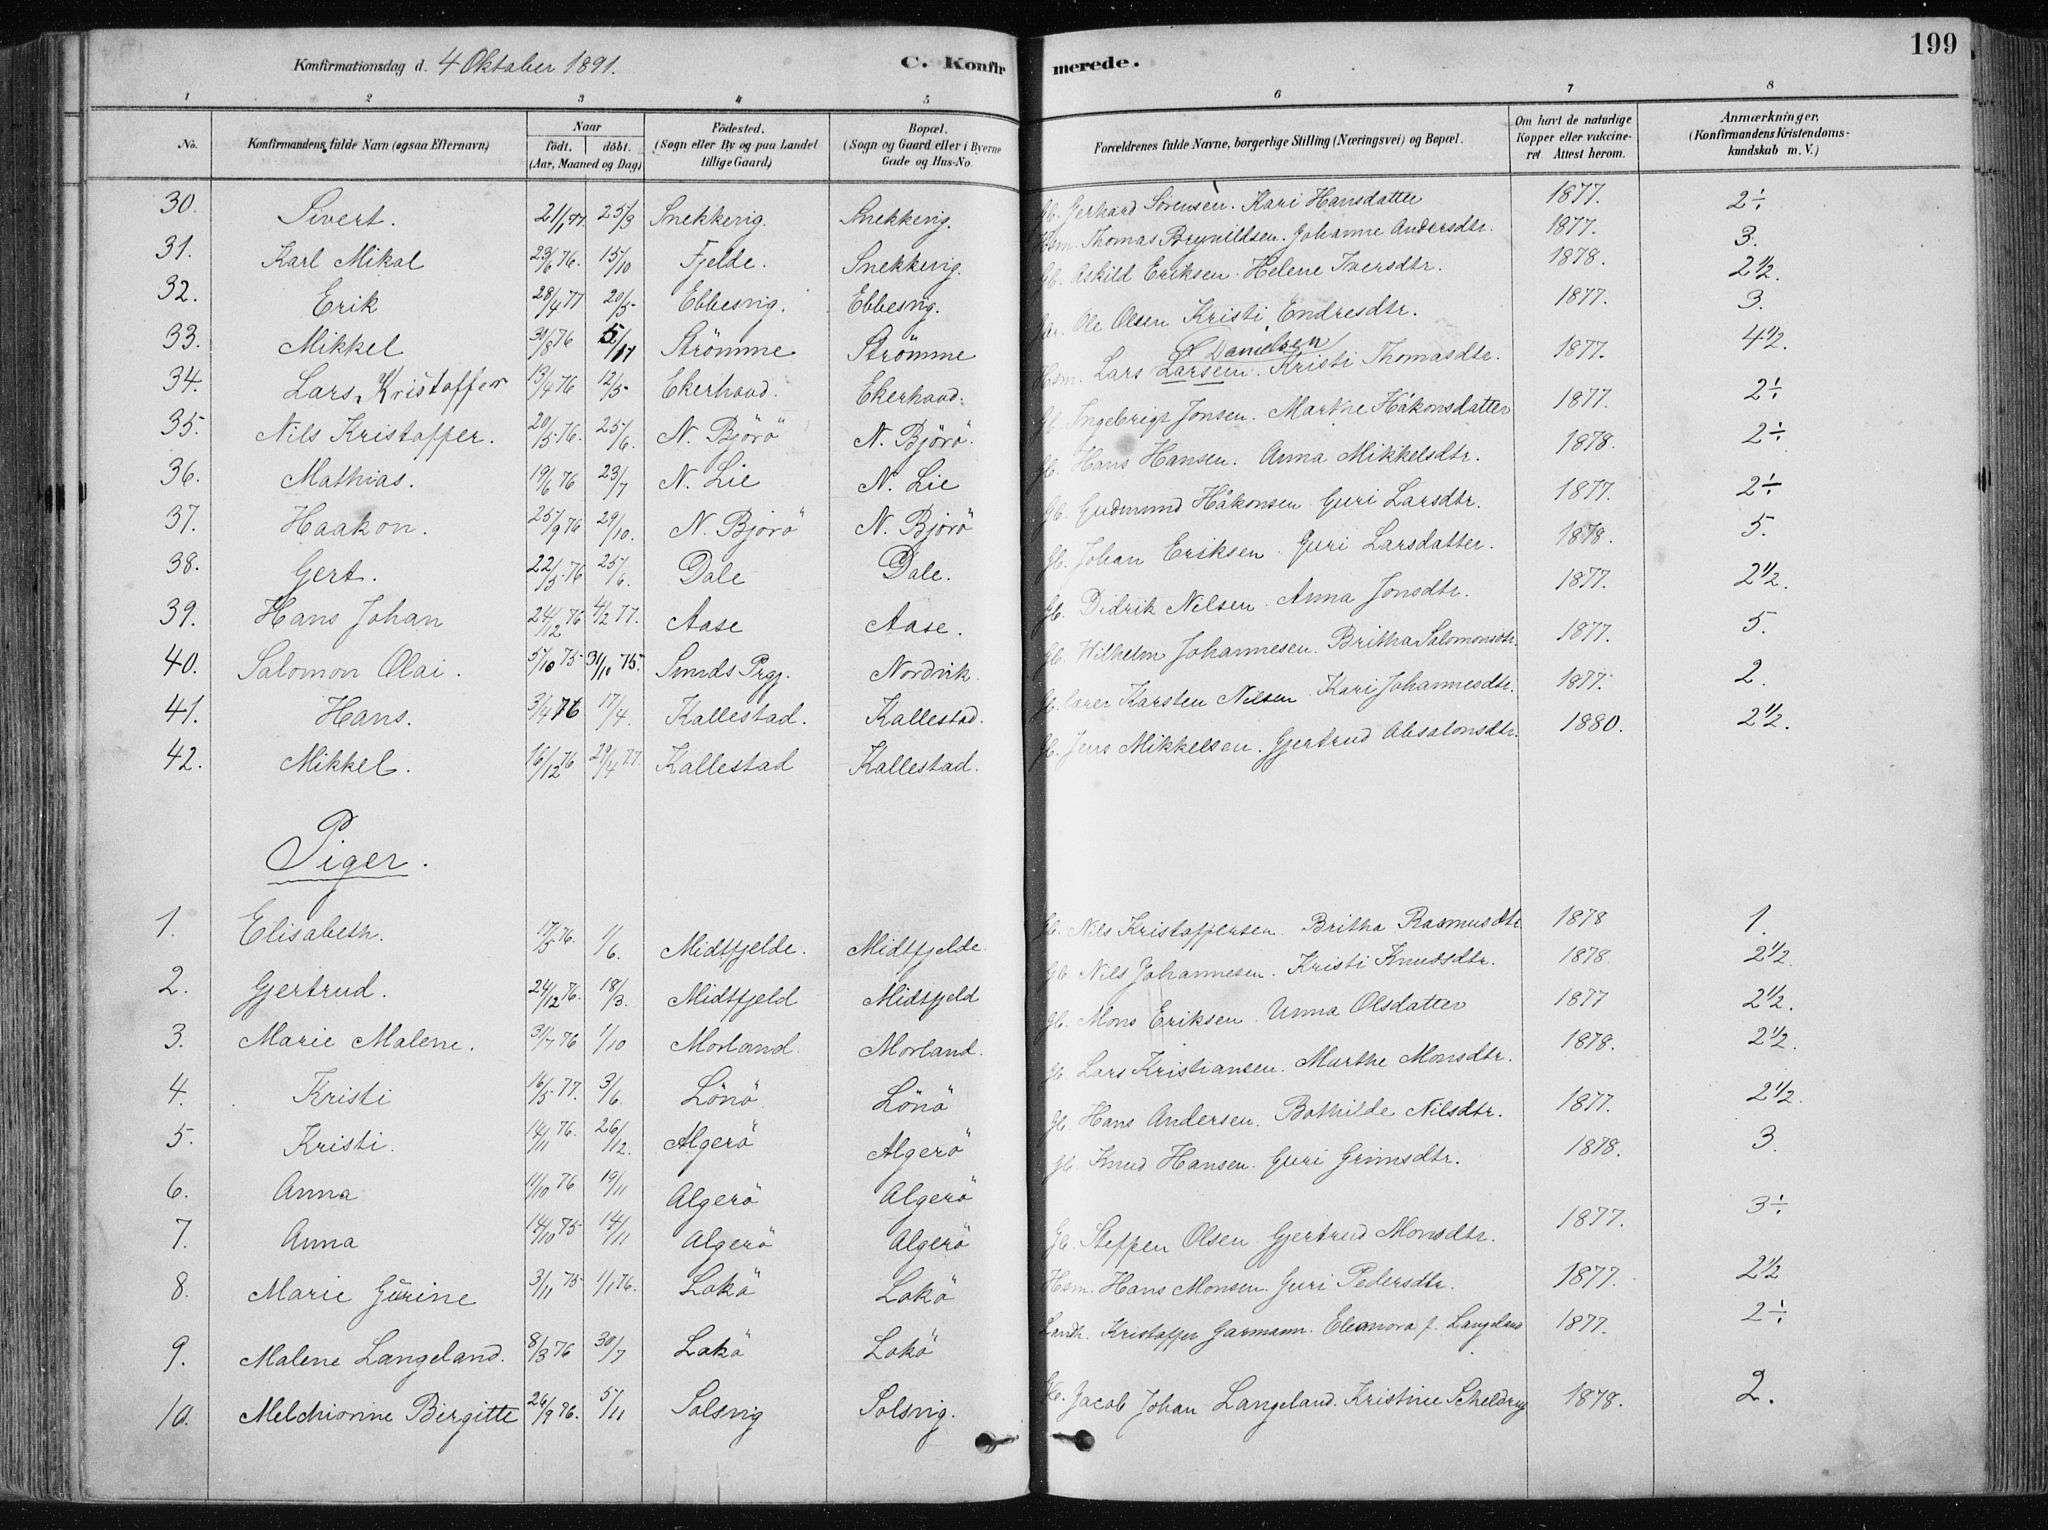 Konfirmationsdag d. 4 Oktober 1891. C. Konfirmerede. 199
1 2 3 4 5 6 7 8
No. Konfirmandens fulde Navn (ogsaa Efternavn) Naar født. døbt. (Aar, Maaned og Dag) Fødested. (Sogn eller By og paa Landet tillige Gaard) Bopæl. (Sogn og Gaard eller i Byerne Gade og Hus-No. Forældrenes fulde Navne, borgerlige Stilling (Næringsvei) og Bopæl. Om havt de naturlige Kopper eller vakcineret Attest herom. Anmærkninger, (Konfirmandens Kristendomskundskab m. V.)
30. Sivert. 21/1 77 25/3 Snekkevig. Snekkevig. Gb. Gerhard Sörensen. Kari Hansdatter 1877. 2÷
31. Karl Mikal 23/6 76. 15/10 Fjelde. Snekkevig. Hsm. Thomas Brynildsen. Johanne Andersdtr. 1877. 3.
32. Erik 28/4 77 20/5 Ebbesvig. Ebbesvig. Gb. Askild Eriksen. Helene Iversdtr. 1878. 2 1/2
33. Mikkel 30/8 76 5/11 Strömme Strömme Ole Olsen Kristi Endresdtr. 1877. 3.
34. Lars Kristoffer 13/4 76 12/5 Ekerhovd. Ekerhovd. Hsm. Lars Larsen Danielsen Kristi Thomasdtr. 1877. 4 1/2.
35. Nils Kristoffer. 20/5 76. 25/6. N. Björö N. Björö. Gb. Ingebrigt Jonsen. Marthe Håkonsdatter 1877. 2÷
36. Mathias. 19/6 76 23/7 N. Lie N. Lie Gb. Hans Hansen. Anna Mikkelsdtr. 1878. 2÷
37. Haakon. 25/9 76 29/10. N. Björö N. Björö Gb. Gudmund Håkonsen. Guri Larsdtr. 1877. 2÷
38. Gert. 22/5 76 25/6. Dale Dale. Gb. Johan Eriksen. Guri Larsdatter. 1878. 5.
39. Hans Johan 24/12 76 4/2 77. Aase Aase. Gb. Didrik Nilsen. Anna Jonsdtr. 1877. 2 1/2.
40. Salomon Olai. 5/10 75 31/10 75. Sunds Prgj. Nordvik. Gb. Wilhelm Johannesen. Britha Salomonsdtr. 1877. 5.
41. Hans. 3/4 76 17/4. Kallestad. Kallestad. Gb. Karsten Nilsen Kari Johannesdtr. 1877. 2.
42. Mikkel. 16/12 76 29/4 77. Kallestad Kallestad. Gb. Jens Mikkelsen. Gjertrud Absalonsdtr. 1880. 2 1/2.
Piger.
1. Elisabeth. 17/5 76. 1/6. Midtfjelde. Midtfjelde. Gb. Nils Kristoffersen. Britha Rasmusdtr 1878 1.
2. Gjertrud. 24/12 76. 18/3. Midtfjeld Midtfjeld Gb. Nils Johannesen. Kristi Knudsdtr. 1878. 2 1/2.
3. Marie Malene. 31/7 76 1/10 Morland. Morland. Gb. Mons Eriksen. Anna Olsdatter 1877 2 1/2.
4. Kristi 16/5 77. 3/6. Lönö Lönö Gb. Lars Kristiansen. Marthe Monsdtr. 1878. 2 1/2.
5. Kristi. 14/11 76. 26/12. Algerö Algerö Gb. Hans Andersen. Bothilde Nilsdtr. 1877. 2 1/2.
6. Anna 11/10 76 19/11 Algerö Algerö Gb. Knud Hansen. Guri Grimsdtr. 1878. 3.
7. Anna 14/10 75 14/11 Algerö Algerö Gb. Steffen Olsen. Gjertrud Monsdtr. 1877. 3÷
8. Marie Gurine 3/11 75 1/1 76. Lokö Lokö Hsm. Hans Monsen. Guri Pedersdtr. 1877. 2 1/2
9. Malene Langeland. 8/3 76 30/7 Lokö Lokö Landh. Kristoffer Garmann. Eleanora f. Langeland 1877. 2÷
10. Melchiorine Birgitte 26/9 76. 5/11 Solsvig Solsvig. Jacob Johan Langeland. Kristine 1878. 2.